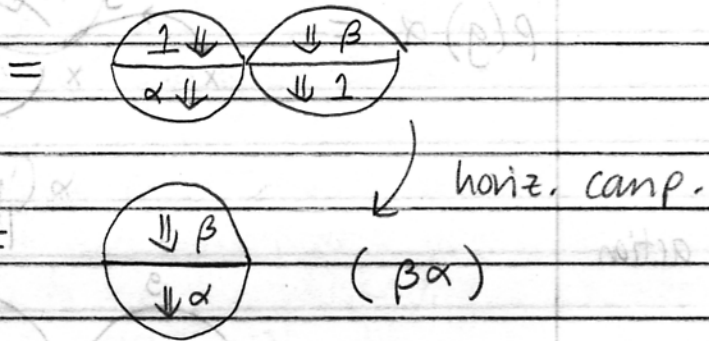 = 1 ⇓ ⇓ β
α ⇓ ⇓ 1
horiz. comp.
= ⇓ β
⇓ α (βα)